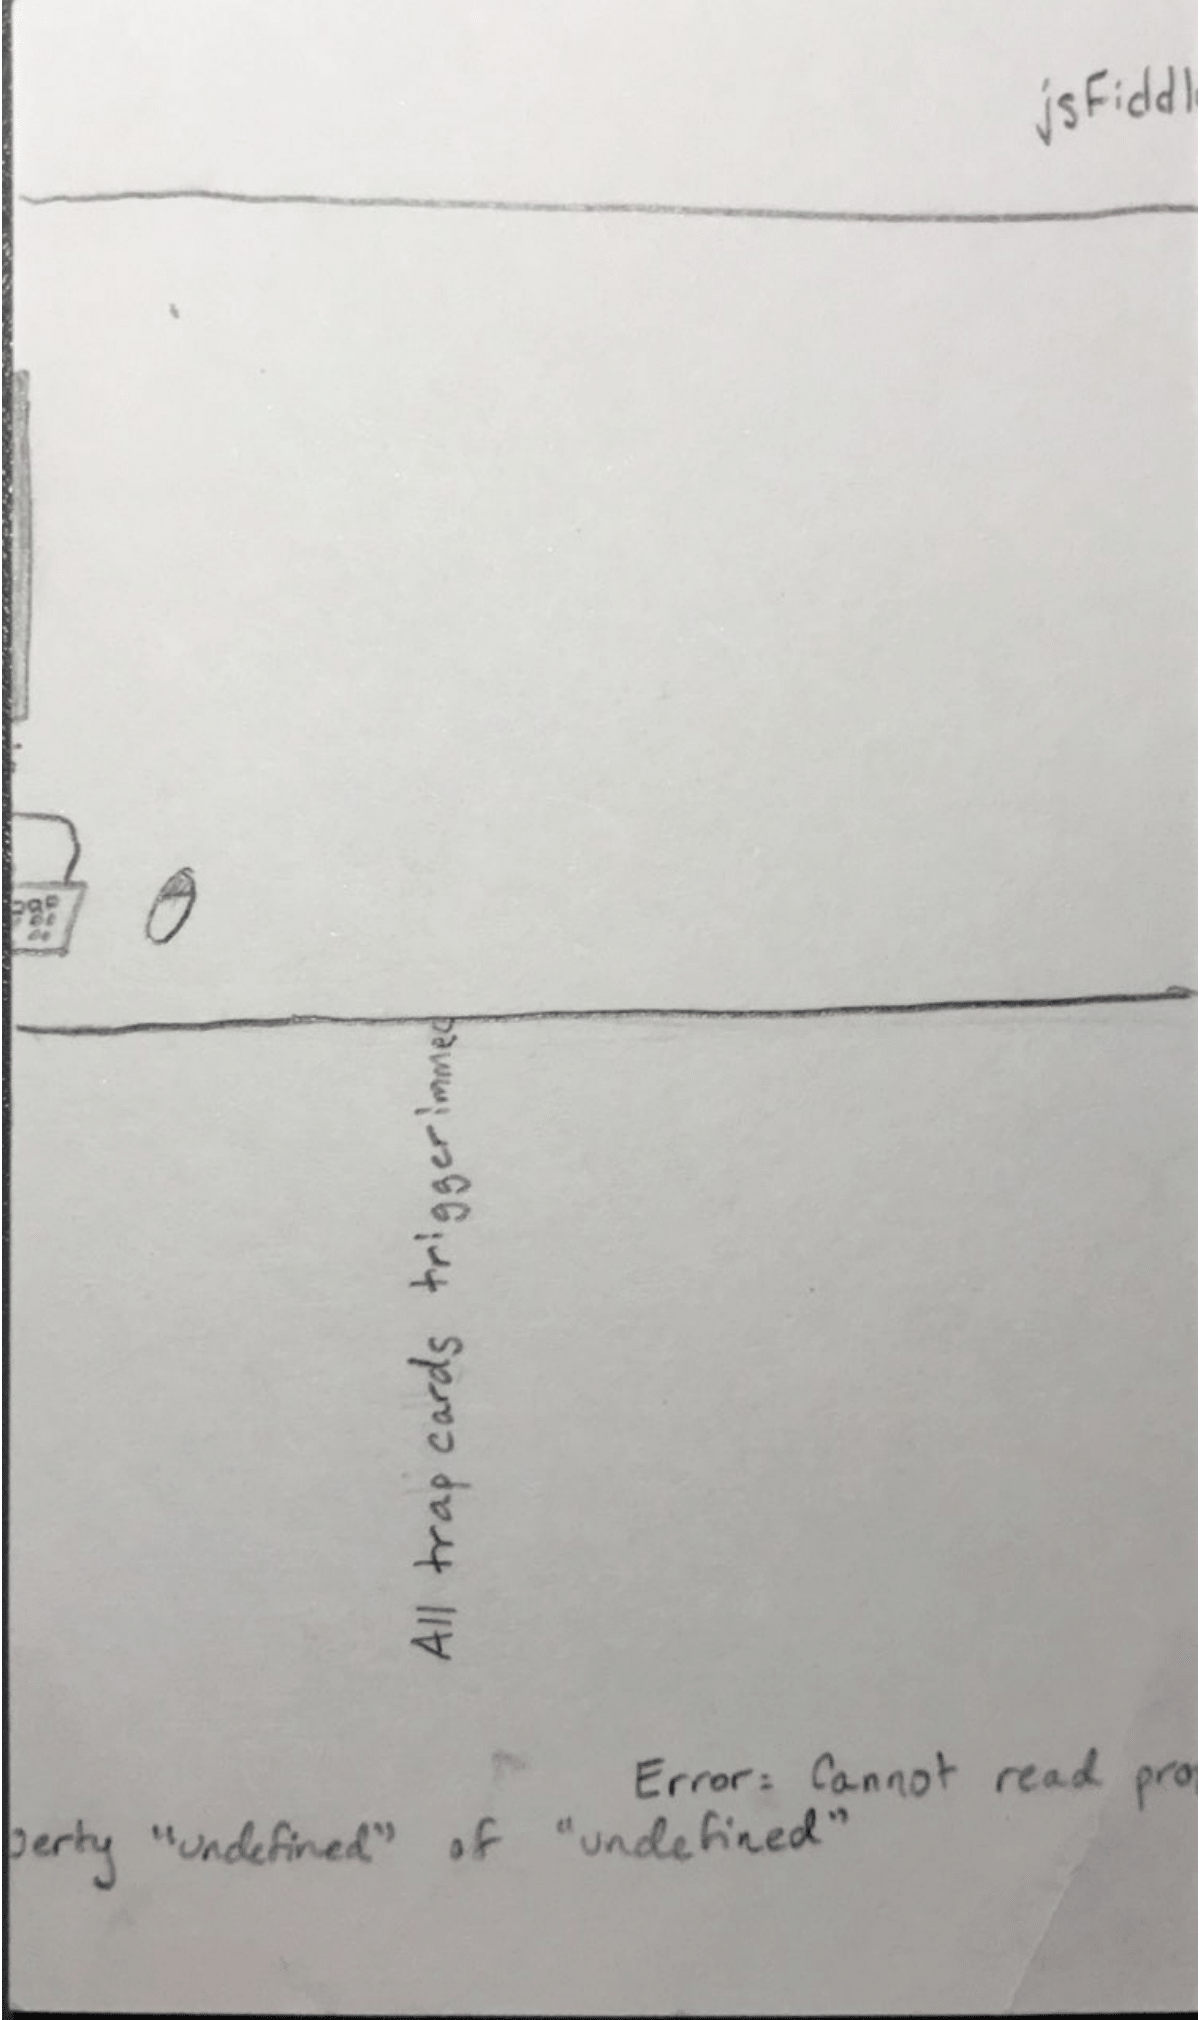 jsFiddl
All trap cards trigger immed
Error: Cannot read prop
perty "undefined" of "undefined"